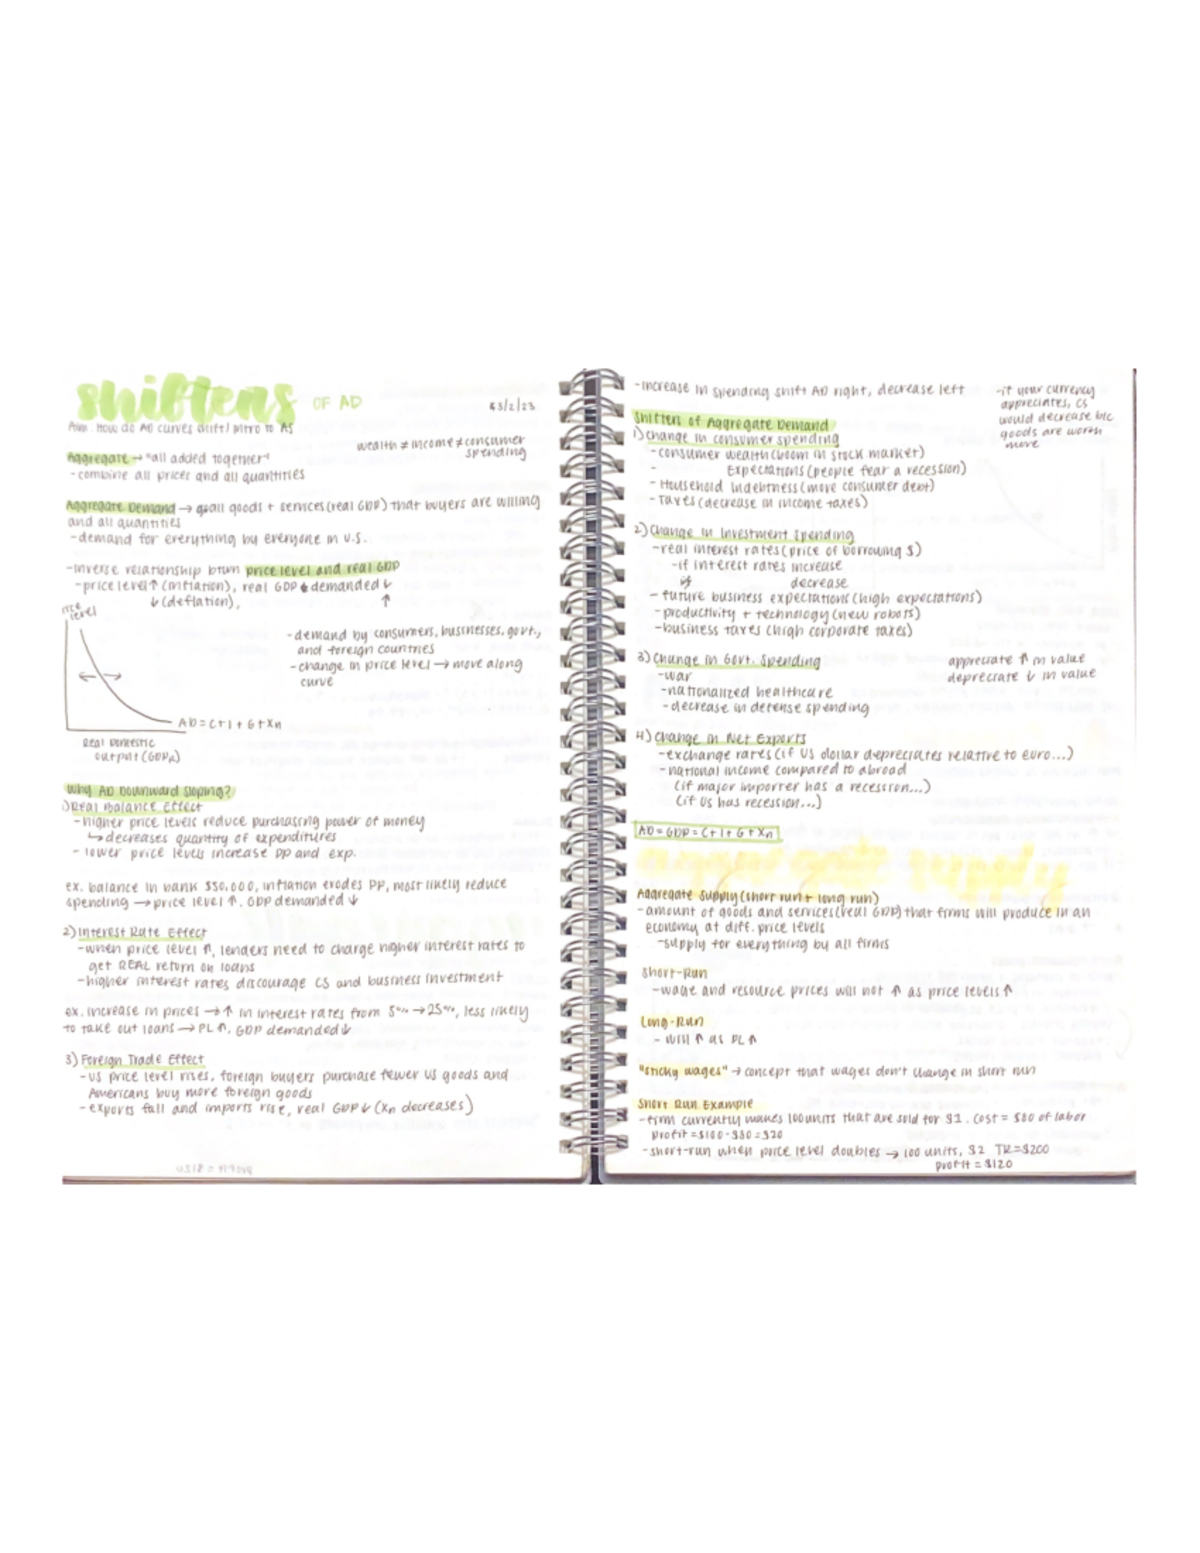 shifters OF AD
3/2/23
Aim: How do AD curves shift/ intro to AS
wealth ≠ income ≠ consumer
spending
Aggregate → "all added together"
- combine all prices and all quantities
Aggregate Demand → all goods + services (real GDP) that buyers are willing
and all quantities
- demand for everything by everyone in U.S.
- inverse relationship btwn price level and real GDP
- price level ↑ (inflation), real GDP demanded ↓
↓ (deflation), ↑
price
level
- demand by consumers, businesses, govt.,
and foreign countries
- change in price level → move along
curve
AD = C + I + G + Xn
Real Domestic
output (GDPR)
Why AD Downward Sloping?
1) Real Balance Effect
- higher price levels reduce purchasing power of money
↳ decreases quantity of expenditures
- lower price levels increase PP and exp.
ex. balance in bank $50,000, inflation erodes PP, most likely reduce
spending → price level ↑. GDP demanded ↓
2) Interest Rate Effect
- when price level ↑, lenders need to charge higher interest rates to
get REAL return on loans
- higher interest rates discourage CS and business investment
ex. increase in prices → ↑ in interest rates from 5% → 25%, less likely
to take out loans → PL ↑. GDP demanded ↓
3) Foreign Trade Effect
- US price level rises, foreign buyers purchase fewer US goods and
Americans buy more foreign goods
- exports fall and imports rise, real GDP ↓ (Xn decreases)
- increase in spending shift AD right, decrease left
- if your currency
appreciates, CS
would decrease b/c
goods are worth
more
Shifters of Aggregate Demand
1) change in consumer spending
- consumer wealth (boom in stock market)
- Expectations (people fear a recession)
- Household Indebtness (more consumer debt)
- Taxes (decrease in income taxes)
2) Change in Investment Spending
- real interest rates (price of borrowing $)
- if interest rates increase
if decrease
- future business expectations (high expectations)
- productivity + technology (new robots)
- business taxes (high corporate taxes)
3) Change in Govt. Spending
- war
- nationalized healthcare
- decrease in defense spending
appreciate ↑ in value
depreciate ↓ in value
4) Change in Net Exports
- exchange rates (if US dollar depreciates relative to euro...)
- national income compared to abroad
(if major importer has a recession...)
(if US has recession...)
AD = GDP = C + I + G + Xn
Aggregate Supply (short run + long run)
- amount of goods and services (real GDP) that firms will produce in an
economy at diff. price levels
- supply for everything by all firms
Short-Run
- wage and resource prices will not ↑ as price levels ↑
Long-Run
- will ↑ as PL ↑
"sticky wages" → concept that wages don't change in short run
Short Run Example
- firm currently makes 100 units that are sold for $1. Cost = $80 of labor
profit = $100 - $80 = $20
- short-run when price level doubles → 100 units, $2 TR = $200
profit = $120